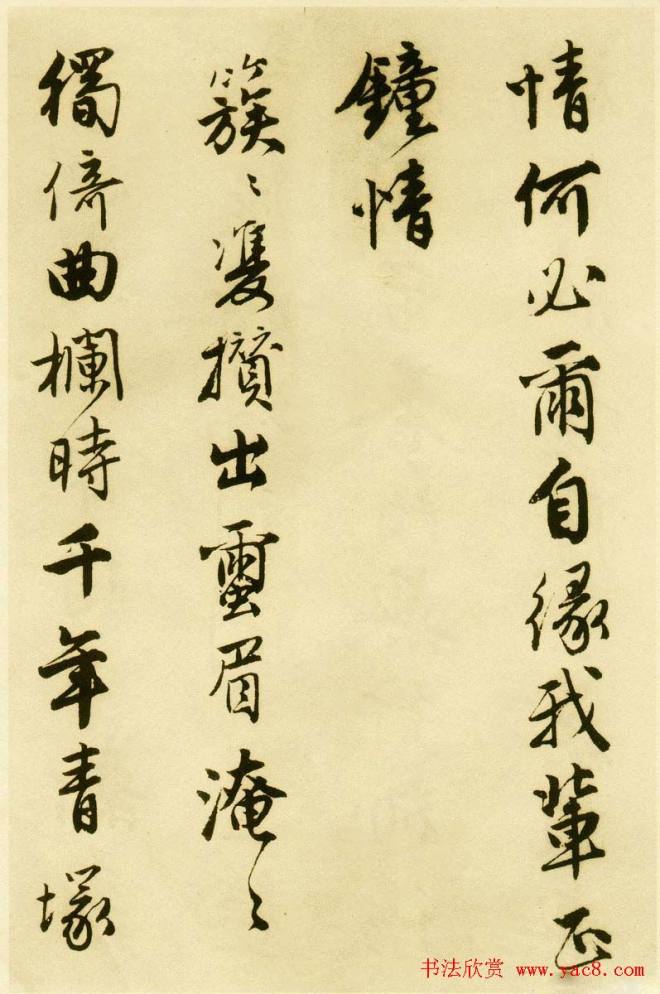 情何必爾自緣我輩正
鐘情
簇〻雙攢出蠒眉淹〻
獨倚曲欄時千年青塚
书法欣赏 www.yac8.com